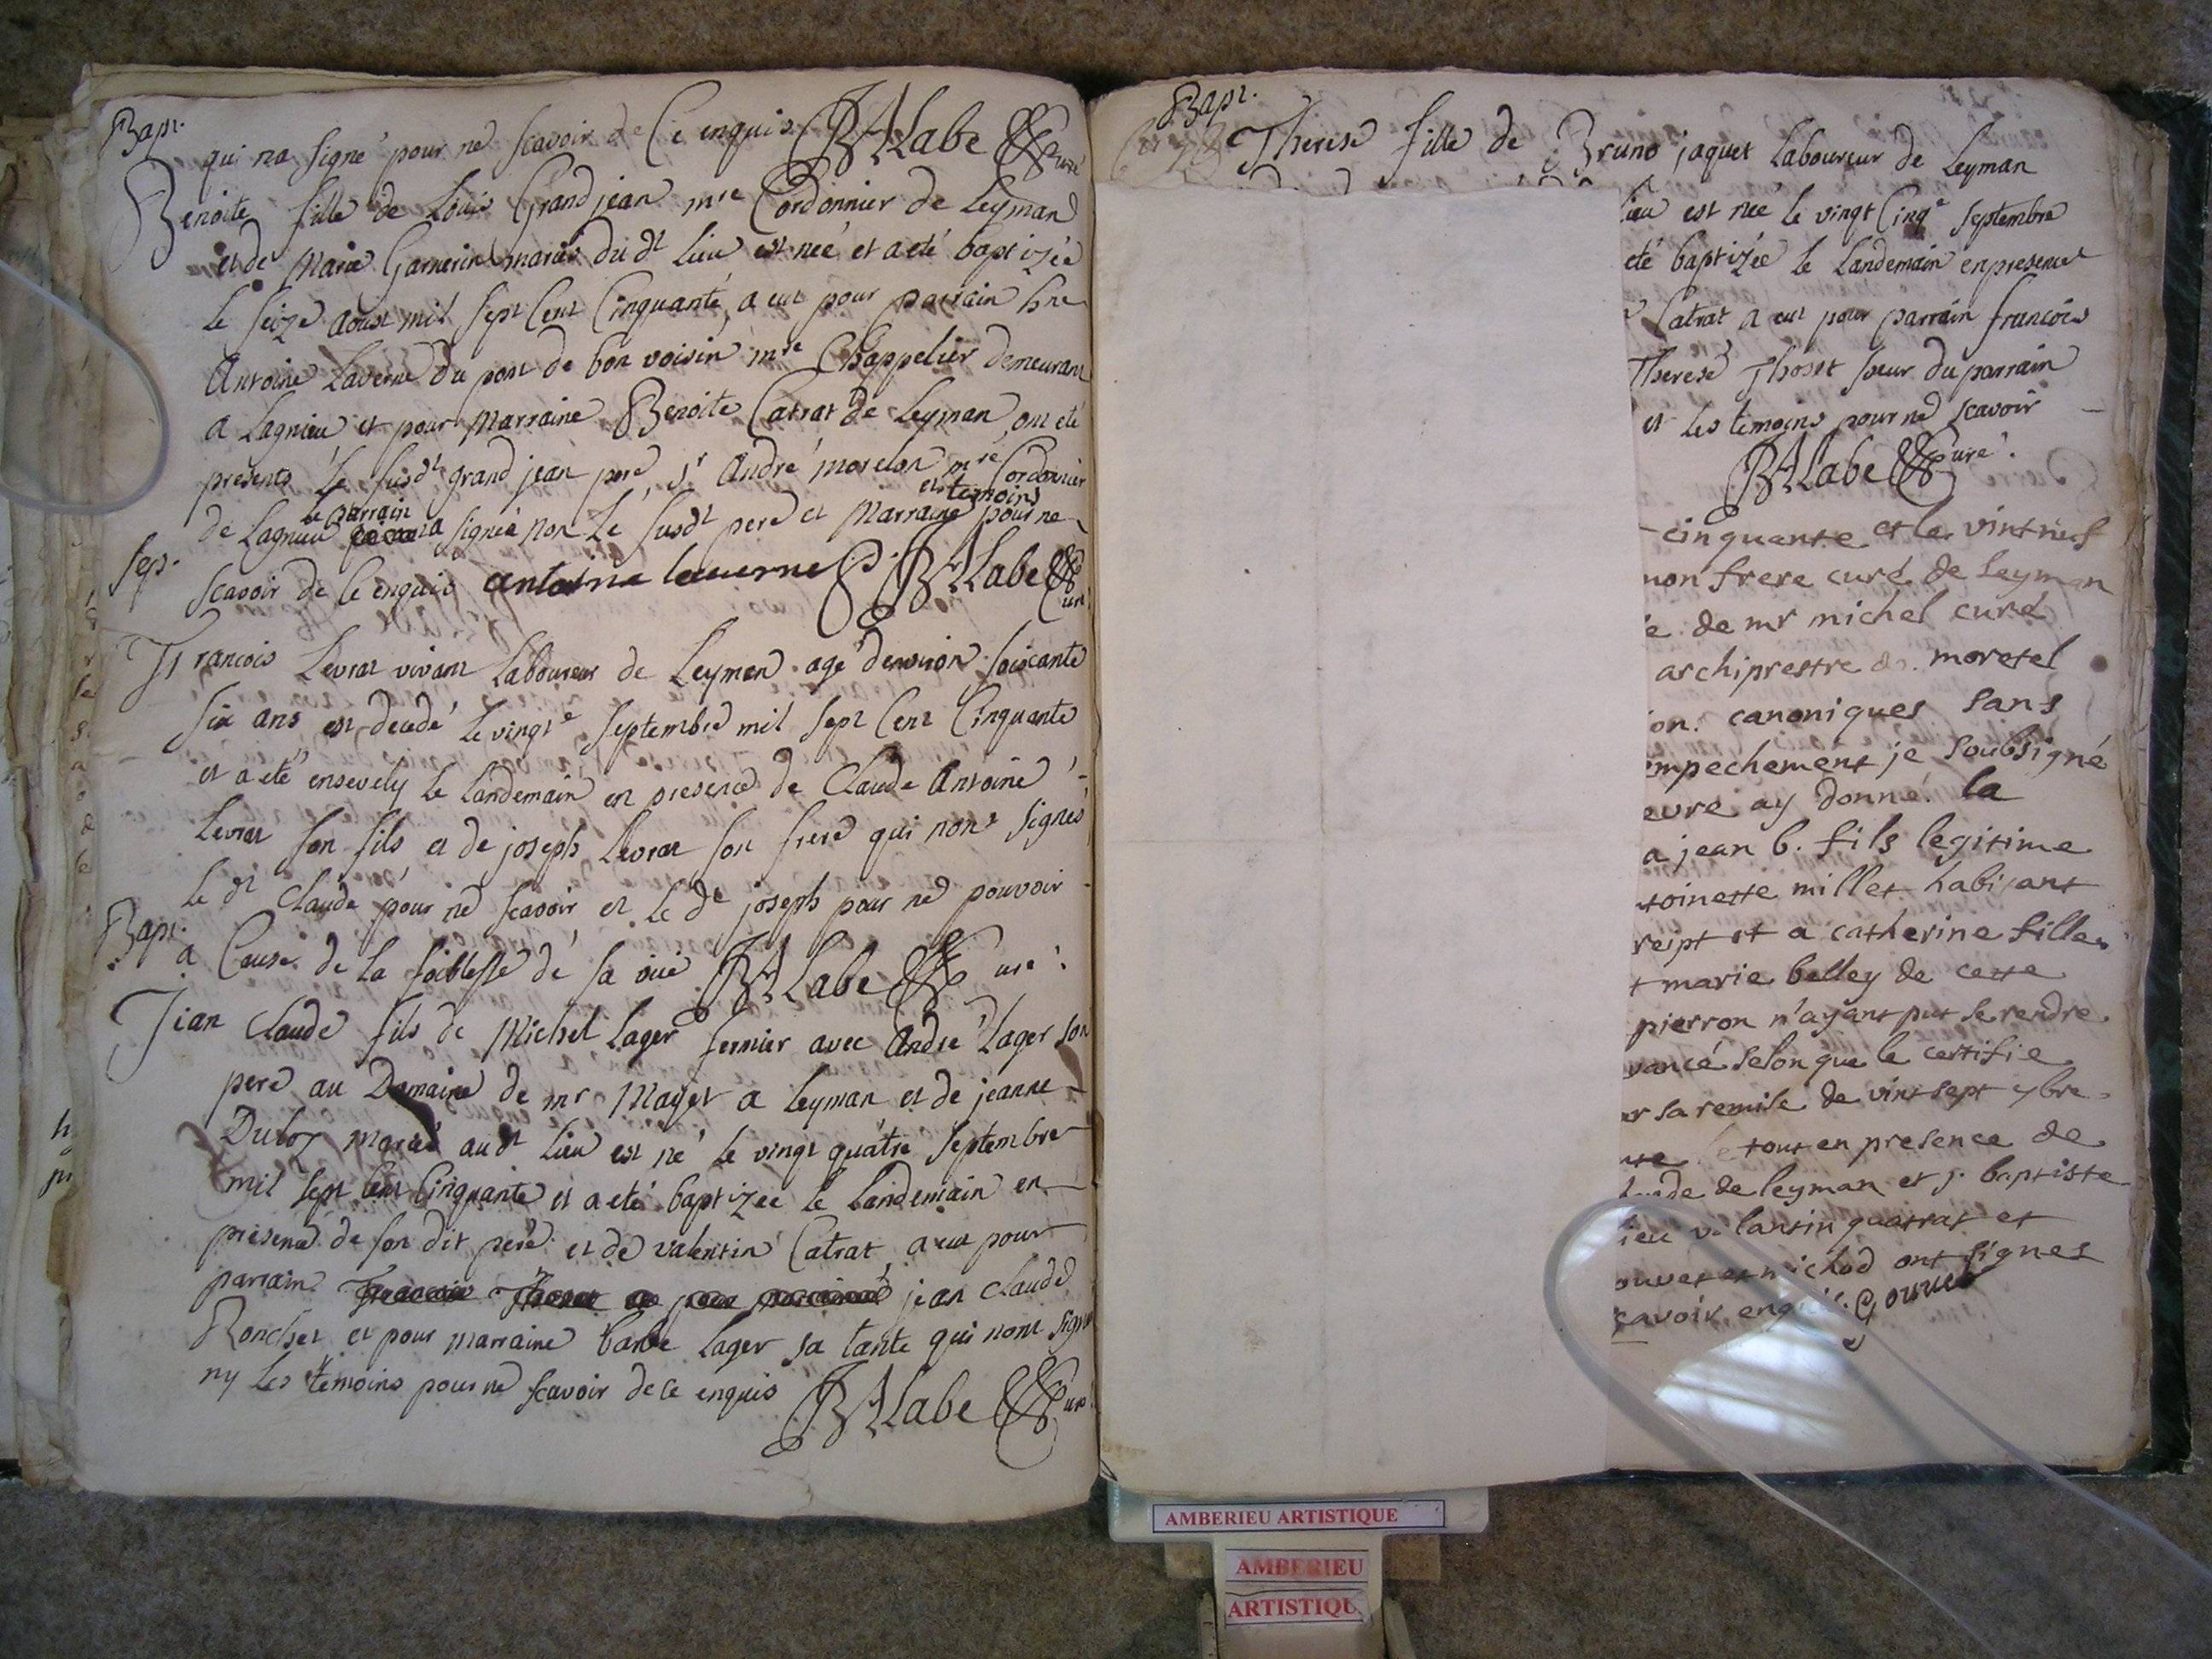 Bapt.
qui na signé pour ne scavoir de Ce enquis BALabe Curé
Benoite fille de Louis Grandjean mre Cordonnier de Leyman
et de Marie Garnerin mariés du dt Lieu est née et a eté baptizée
le seize aoust mil sept Cent Cinquante, a eut pour parrain hre
Antoine Laverne du pont de bon voisin mre Chappelier demeurant
a Lagnieu et pour Marraine Benoite Catrat de Leyman, ont eté
presents Le susdt grand jean pere, sr André morelon mre Cordonnier
et temoins
le parrain
de Lagnieu a signéé non Le susdt pere et Marraine pour ne
scavoir de Ce enquis antoine laverne BALabe Curé
Sep.
Francois Levrat vivant Laboureur de Leymen agé denviron soiscante
six ans est decedé le vingte septembre mil sept Cent Cinquante
et a eté ensevely le Landemain en presence de Claude Antoine
Levrat son fils et de joseph Levrat son frere qui nont signés
le dt Claude pour ne scavoir et le dt joseph pour ne pouvoir
Bapt.
a Cause de la foiblesse de sa ouie BALabe Curé.
Jean Claude fils de Michel Lager fermier avec André Lager son
pere au Domaine de mr Mayet a Leyman et de jeanne
Duloz mariés audt Lieu est né le vingt quatre septembre
mil sept Cent Cinquante et a eté baptizée le Landemain en
presence de son dit pere et de valentin Catrat, a eut pour
parrain Francois Thoset jean Claude
Ronchet et pour marraine barbe Lager sa tante qui nont signé
ny Les temoins pour ne scavoir de Ce enquis BALabe Curé
Bapt.
Therese fille de Bruno jaquet Laboureur de Leyman
lieu est née le vingt Cinqe septembre
eté baptizée le Landemain en presence
Catrat a eut pour parrain francois
Therese Thoset soeur du parrain
et les temoins pour ne scavoir
BALabe Curé.
cinquante et le vintneuf
mon frere curé de leyman
e de mr michel curé
archiprestre de moretel
on canoniques sans
empechement je soubsigné
evre ay donné la
a jean b. fils legitime
toinette millet habitant
reipt et a catherine fille
t marie belley de cette
pierron n'ayant put se rendre
vancé selon que le certifie
ar sa remise de vint sept 7bre
tout en presence de
de leyman et j. baptiste
ieu valantin quatrat et
ouvet et michod ont signes
scavoir enquis. Gouvet
AMBERIEU ARTISTIQUE
AMBERIEU
ARTISTIQU